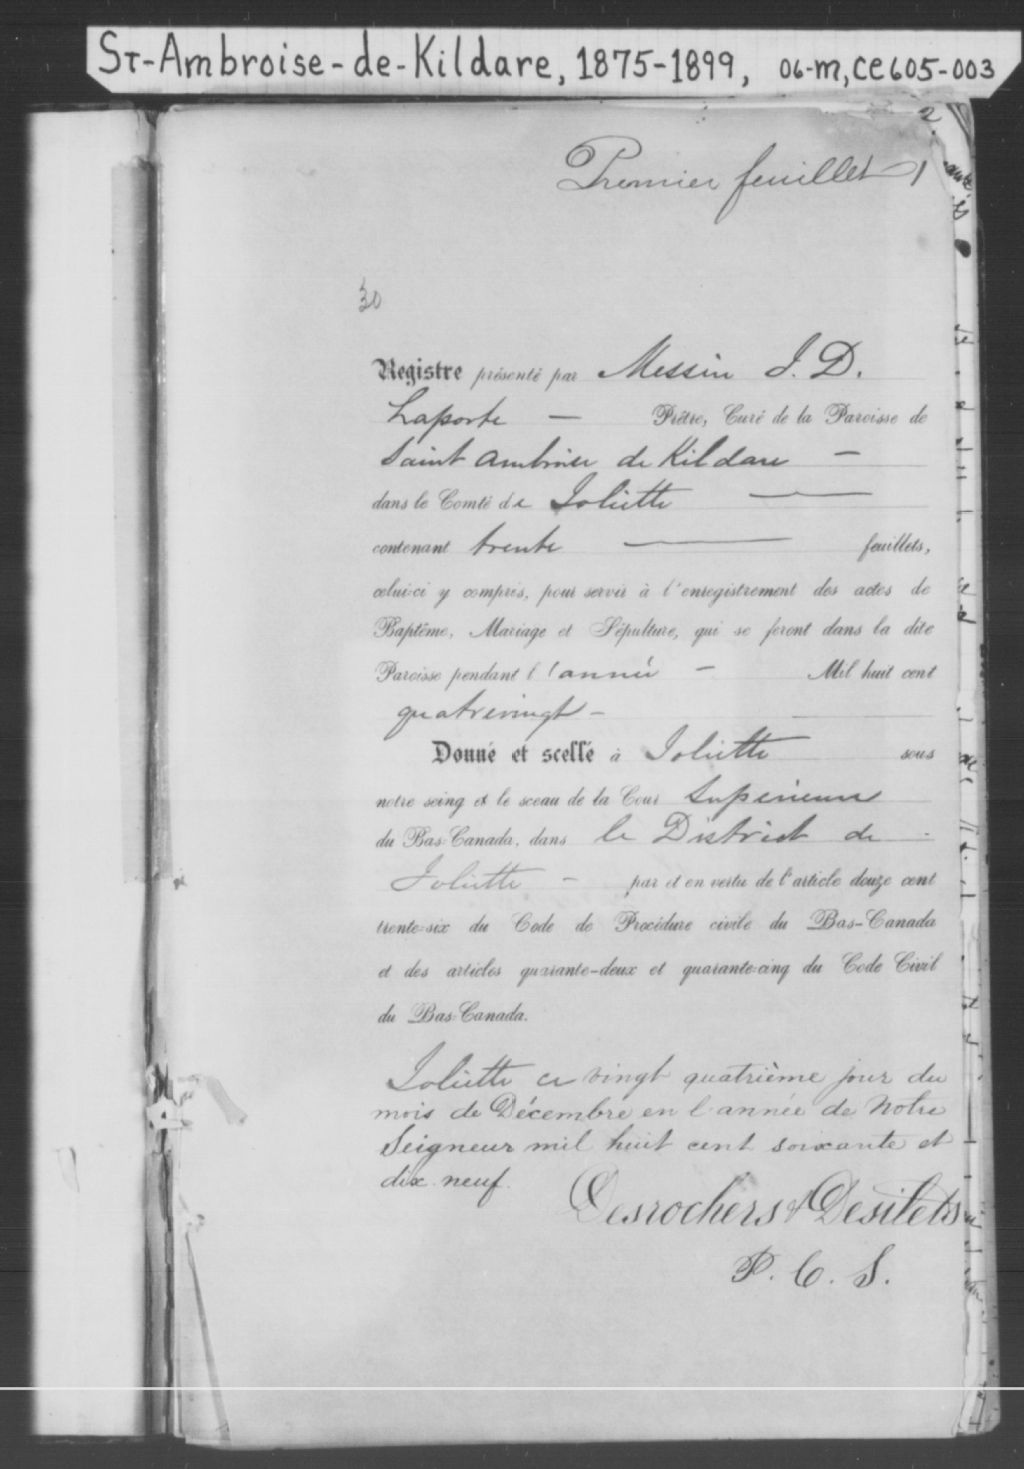 St-Ambroise-de-Kildare, 1875-1899, 06-M, CE605-003
2
Premier feuillet 1
30
Registre présenté par Messire J. D.
Laporte — Prêtre, Curé de la Paroisse de
Saint Ambroise de Kildare —
dans le Comté de Joliette —
contenant trente — feuillets,
celui-ci y compris, pour servir à l'enregistrement des actes de
Baptême, Mariage et Sépulture, qui se feront dans la dite
Paroisse pendant l'année — Mil huit cent
quatrevingt —
Donné et scellé à Joliette sous
notre seing et le sceau de la Cour Supérieure
du Bas-Canada, dans le District de
Joliette — par et en vertu de l'article douze cent
trente-six du Code de Procédure civile du Bas-Canada
et des articles quarante-deux et quarante-cinq du Code Civil
du Bas-Canada.
Joliette ce vingt quatrième jour du
mois de Décembre en l'année de Notre
Seigneur mil huit cent soixante et
dix neuf.
Desrochers & Desilets
P. C. S.